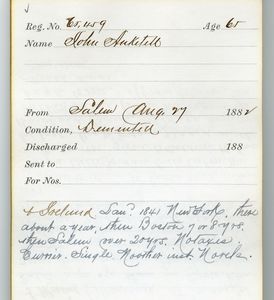 Reg. No. 65,459 Age 65
Name John Anketell
From Salem Aug. 27 1882
Condition, Demented
Discharged 188
Sent to
For Nos.
& Ireland Jan'y 1841 New York, there
about a year, then Boston 7 or 8 yrs,
then Salem over 20 yrs. No taxes
Currier. Single No other inst. No rels.